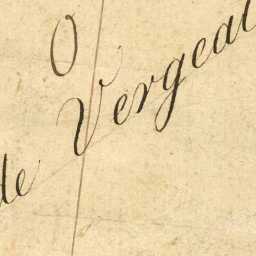 O
de Vergeal